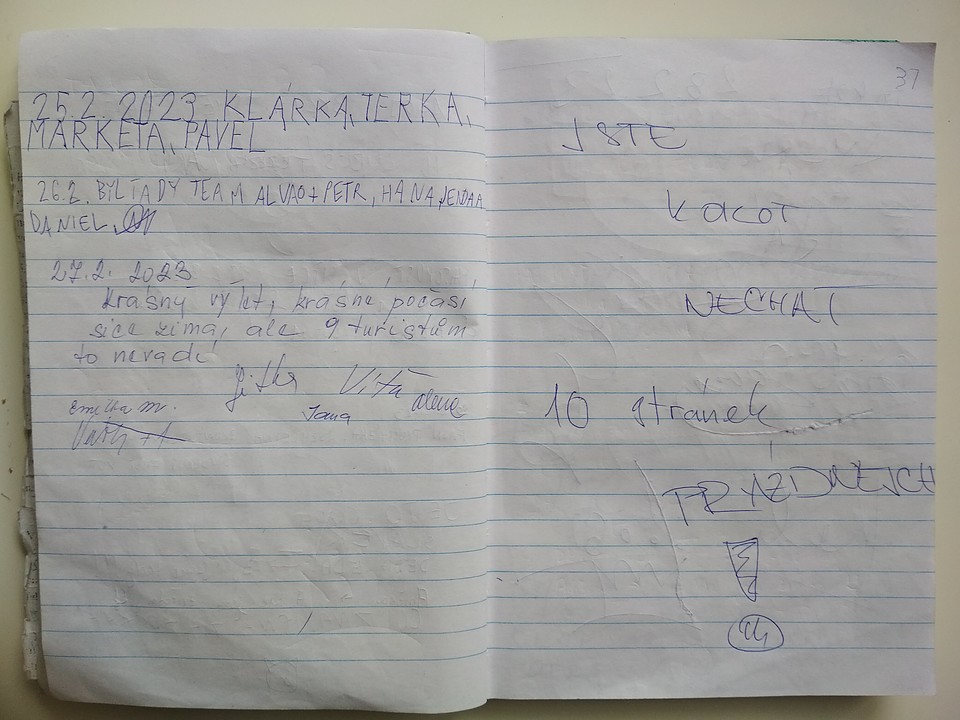 25.2. 2023 KLÁRKA, TERKA,
MARKÉTA, PAVEL
26.2. BYL TADY TEAM ALVAO + PETR, HANA, JENDA A
DANIEL,
27.2. 2023
Krásný výlet, krásné počasí
sice zima, ale 9 turistům
to nevadí
Jitka Víťa Alena
Emilka M. Jana
37
JSTE
KOCOT
NECHAT
10 stránek
PRÁZDNEJCH